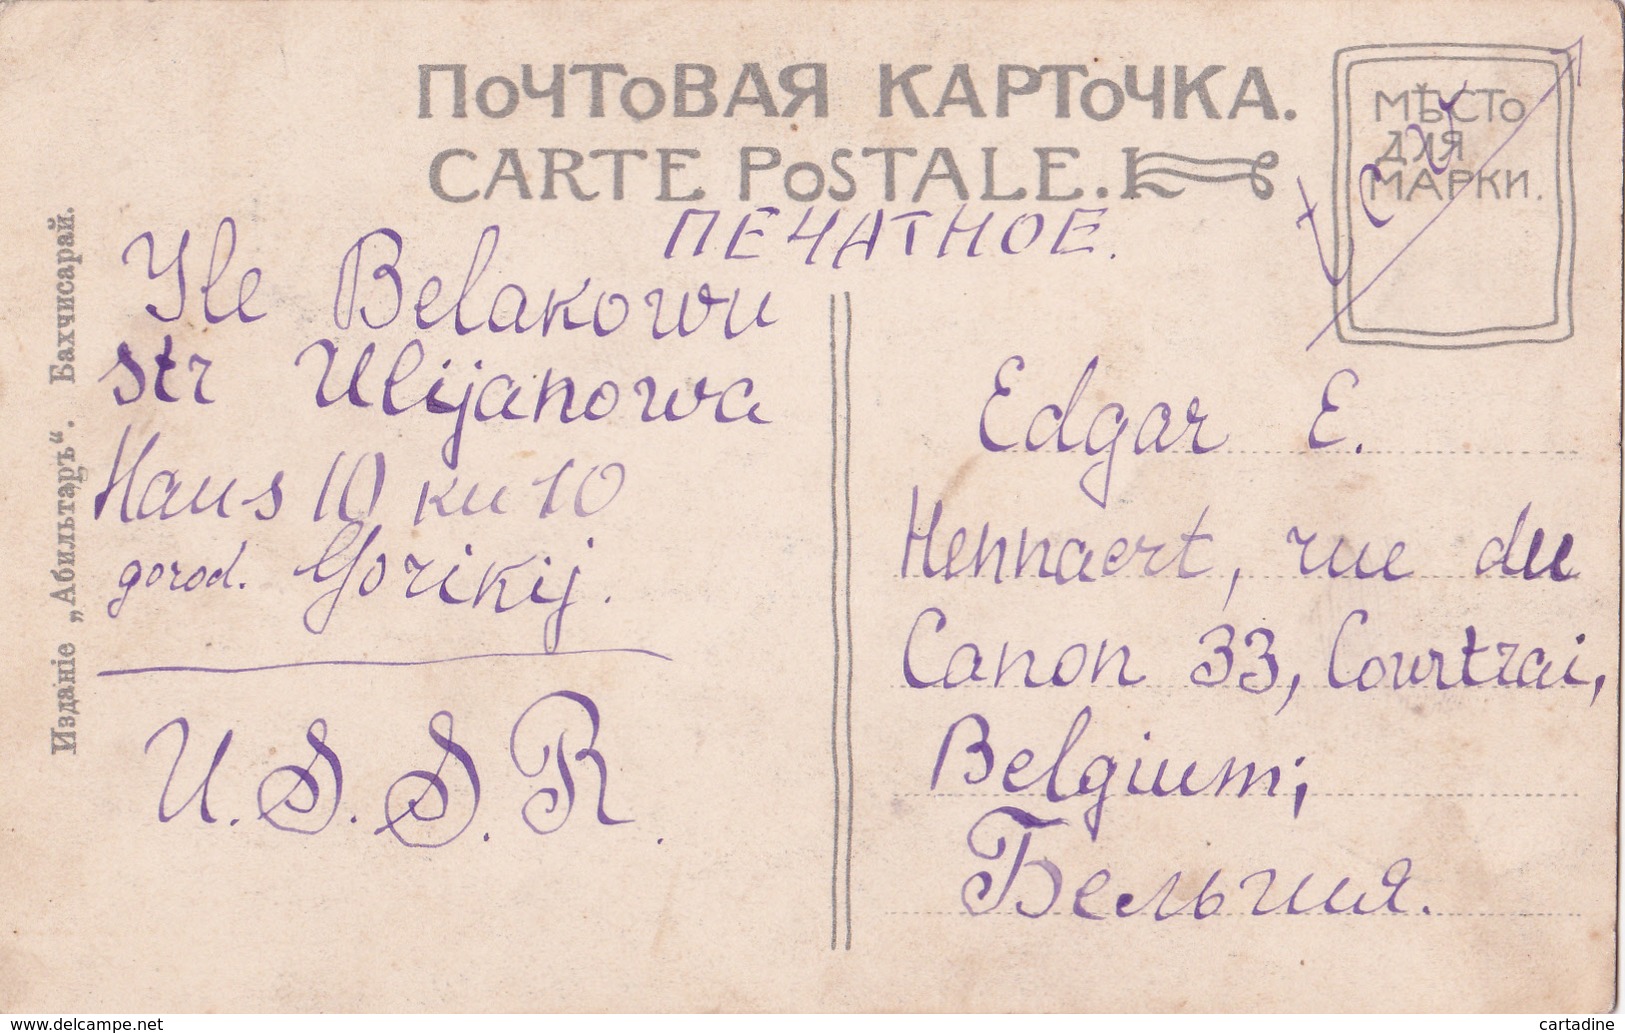 ПОЧТОВАЯ КАРТОЧКА.
CARTE POSTALE.
МѢСТО
ДЛЯ
МАРКИ.
ПЕЧАТНОЕ.
Изданіе „Абильтаръ“. Бахчисарай.
Ile Belakowu
str Ulijanowa
Haus 10 ku 10
gorod. Gorikij.
U.S.S.R.
Edgar E.
Hennaert, rue du
Canon 33, Courtrai,
Belgium;
Бельгия.
www.delcampe.net
cartadine